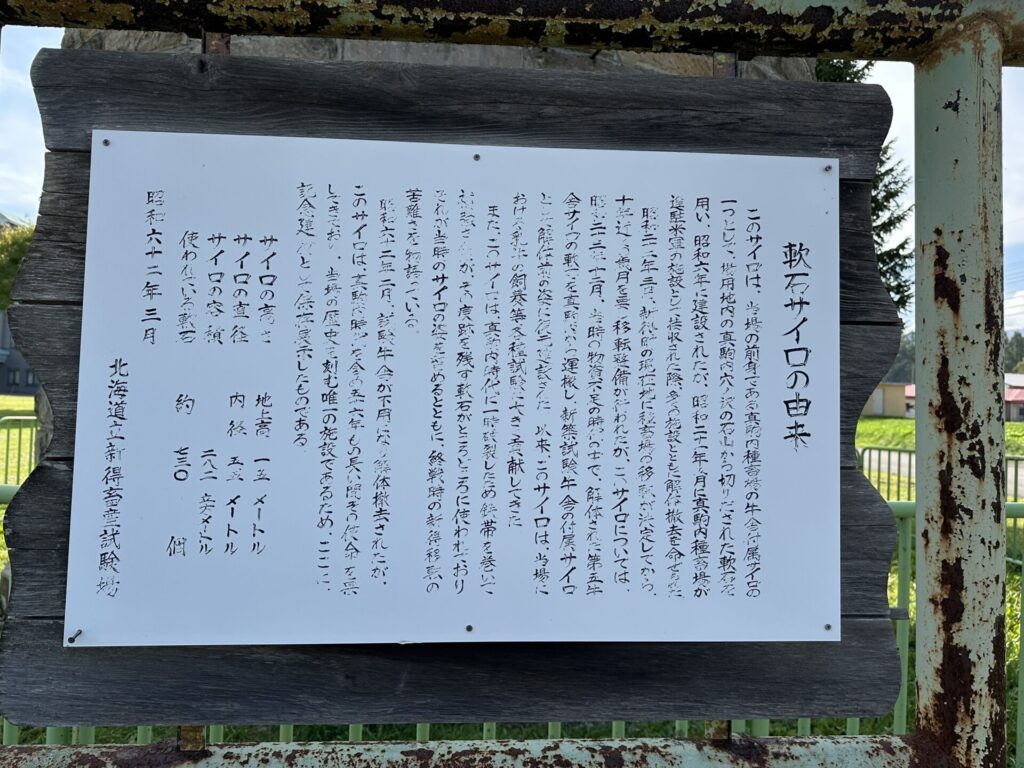 軟石サイロの由来
このサイロは、当場の前身である真駒内種畜場の牛舎付属サイロの
一つとして、場用地内の真駒内穴ノ沢の石山から切りだされた軟石を
用い、昭和六年に建設されたが、昭和二十一年 月に真駒内種畜場が
進駐米軍の施設として接収された際、多くの施設とともに解体、撤去を命ぜられた
昭和二一年三月、新得町の現在地に種畜場の移転が決定してから、
十 月を要 移転整備が行われたが、このサイロについては、
昭和二二年十一月、当時の物資不足の時代の中で、解体された第五牛
舎サイロの軟石を真駒内から運搬し、新築試験牛舎の付属サイロ
として解体前の姿に復元建設された 以来、このサイロは、当場に
おける乳牛の飼養等各種試験に大きく貢献してきた
また、このサイロは、真駒内時代に一時破裂したため鉄帯を巻いて
が、その痕跡を残す軟石がところどころに使われており
それが当時のサイロの姿を留めるとともに、終戦時の新得移転の
苦難さを物語っている
昭和六十二年二月、試験牛舎が不用になり解体撤去されたが、
このサイロは、真駒内時代を含め五六年もの長い間その使命を果
してきており、当場の歴史を刻む唯一の施設であるため、ここに、
記念建造物として保存展示したものである
サイロの高さ 地上高 一五 メートル
サイロの直径 内径 五 メートル
サイロの容積 二八二 立方メートル
使われている軟石 約 七三〇 個
昭和六十二年三月
北海道立新得畜産試験場